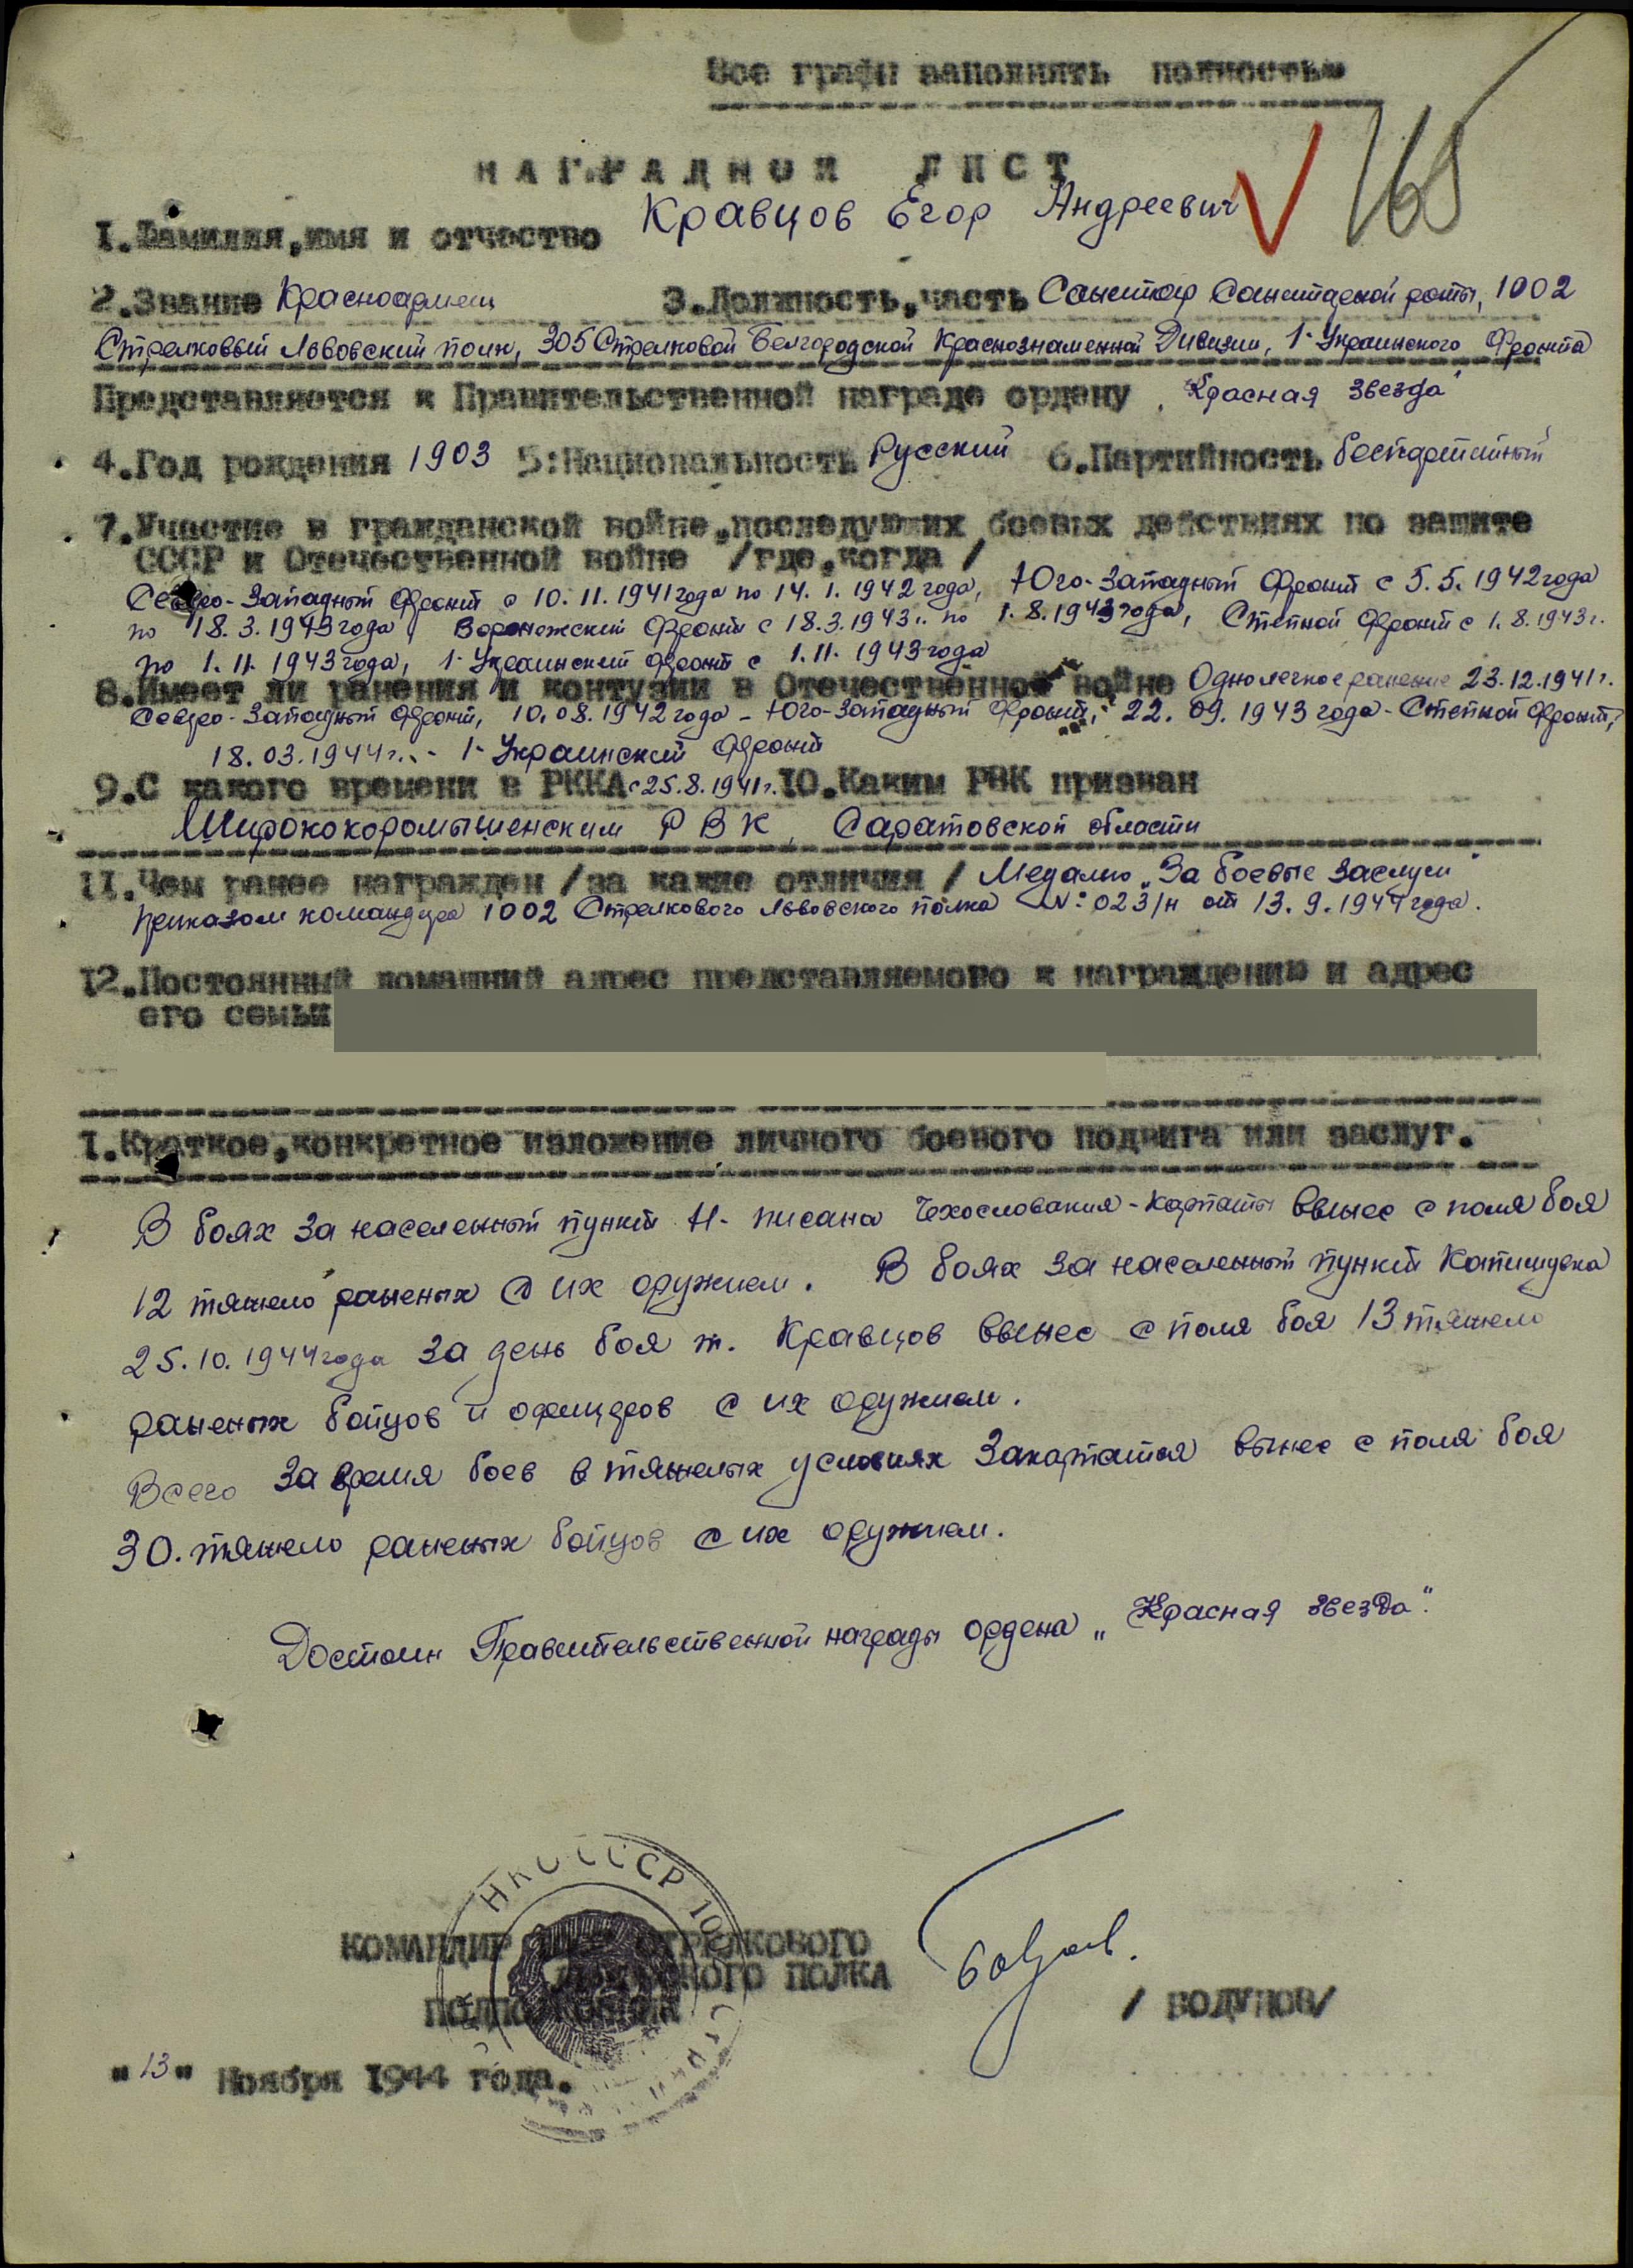 Все графи заполнять полностью
165
НАГРАДНОЙ ЛИСТ
1.Фамилия,имя и отчество Кравцов Егор Андреевич
2.Звание Красноармеец 3.Должность,часть Санитар Санитарной роты, 1002
Стрелковый Львовский полк, 305 Стрелковой Белгородской Краснознаменной Дивизии, 1-Украинского Фронта
Представляется к Правительственной награде ордену "Красная звезда"
4.Год рождения 1903 5:Национальность Русский 6.Партийность беспартийный
7.Участие в гражданской войне,последующих боевых действиях по защите
СССР и Отечественной войне /где,когда/
Северо-Западный фронт с 10.11.1941 года по 14.1.1942 года, Юго-Западный фронт с 5.5.1942 года
по 18.3.1943 года, Воронежский фронт с 18.3.1943г. по 1.8.1943 года, Степной фронт с 1.8.1943г.
по 1.11.1943 года, 1-Украинский фронт с 1.11.1943 года
8.Имеет ли ранения и контузии в Отечественной войне Одно легкое ранение 23.12.1941г.
Северо-Западный фронт, 10.08.1942 года - Юго-Западный фронт, 22.09.1943 года - Степной фронт,
18.03.1944г. - 1-Украинский фронт
9.С какого времени в РККА с 25.8.1941г. 10.Каким РВК призван
РВК, Саратовской области
11.Чем ранее награжден /за какие отличия/ Медалью "За боевые заслуги"
приказом командира 1002 Стрелкового Львовского полка №: 023/н от 13.9.1944 года.
12.Постоянный домашний адрес представляемого к награждению и адрес
его семьи
I.Краткое,конкретное изложение личного боевого подвига или заслуг.
В боях за населенный пункт Н-писана Чехословакия-Карпаты вынес с поля боя
12 тяжело раненых с их оружием. В боях за населенный пункт
25.10.1944 года за день боя т. Кравцов вынес с поля боя 13 тяжело
раненых бойцов и офицеров с их оружием.
Всего за время боев в тяжелых условиях Закарпатья вынес с поля боя
30.тяжело раненых бойцов с их оружием.
Достоин Правительственной награды ордена "Красная звезда".
НКО СССР
КОМАНДИР СТРЕЛКОВОГО
ЛЬВОВСКОГО ПОЛКА
ПОДПОЛКОВНИК /БОДУНОВ/
"13" Ноября 1944 года.